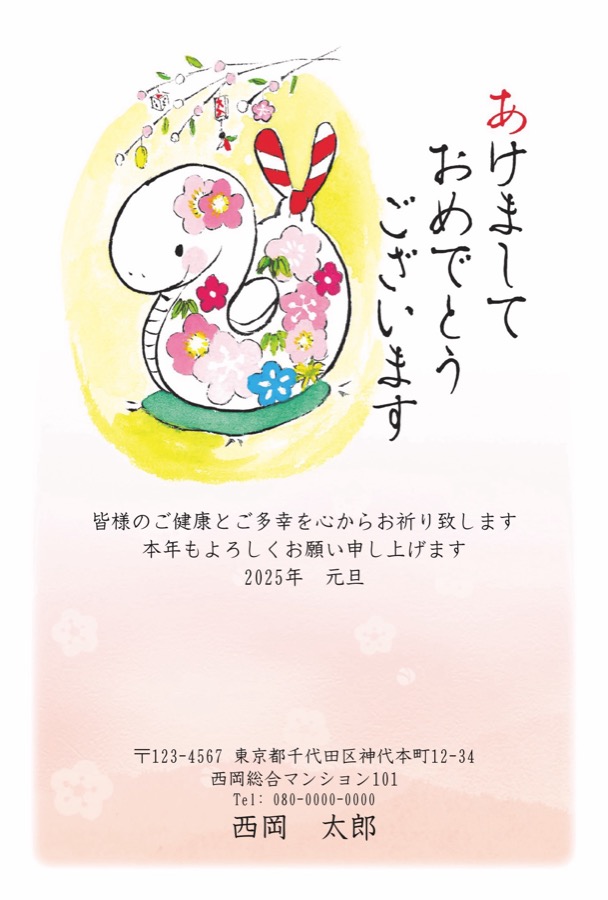 あけまして
おめでとう
ございます
皆様のご健康とご多幸を心からお祈り致します
本年もよろしくお願い申し上げます
2025年　元旦
〒123-4567 東京都千代田区神代本町12-34
西岡総合マンション101
Tel: 080-0000-0000
西岡　太郎